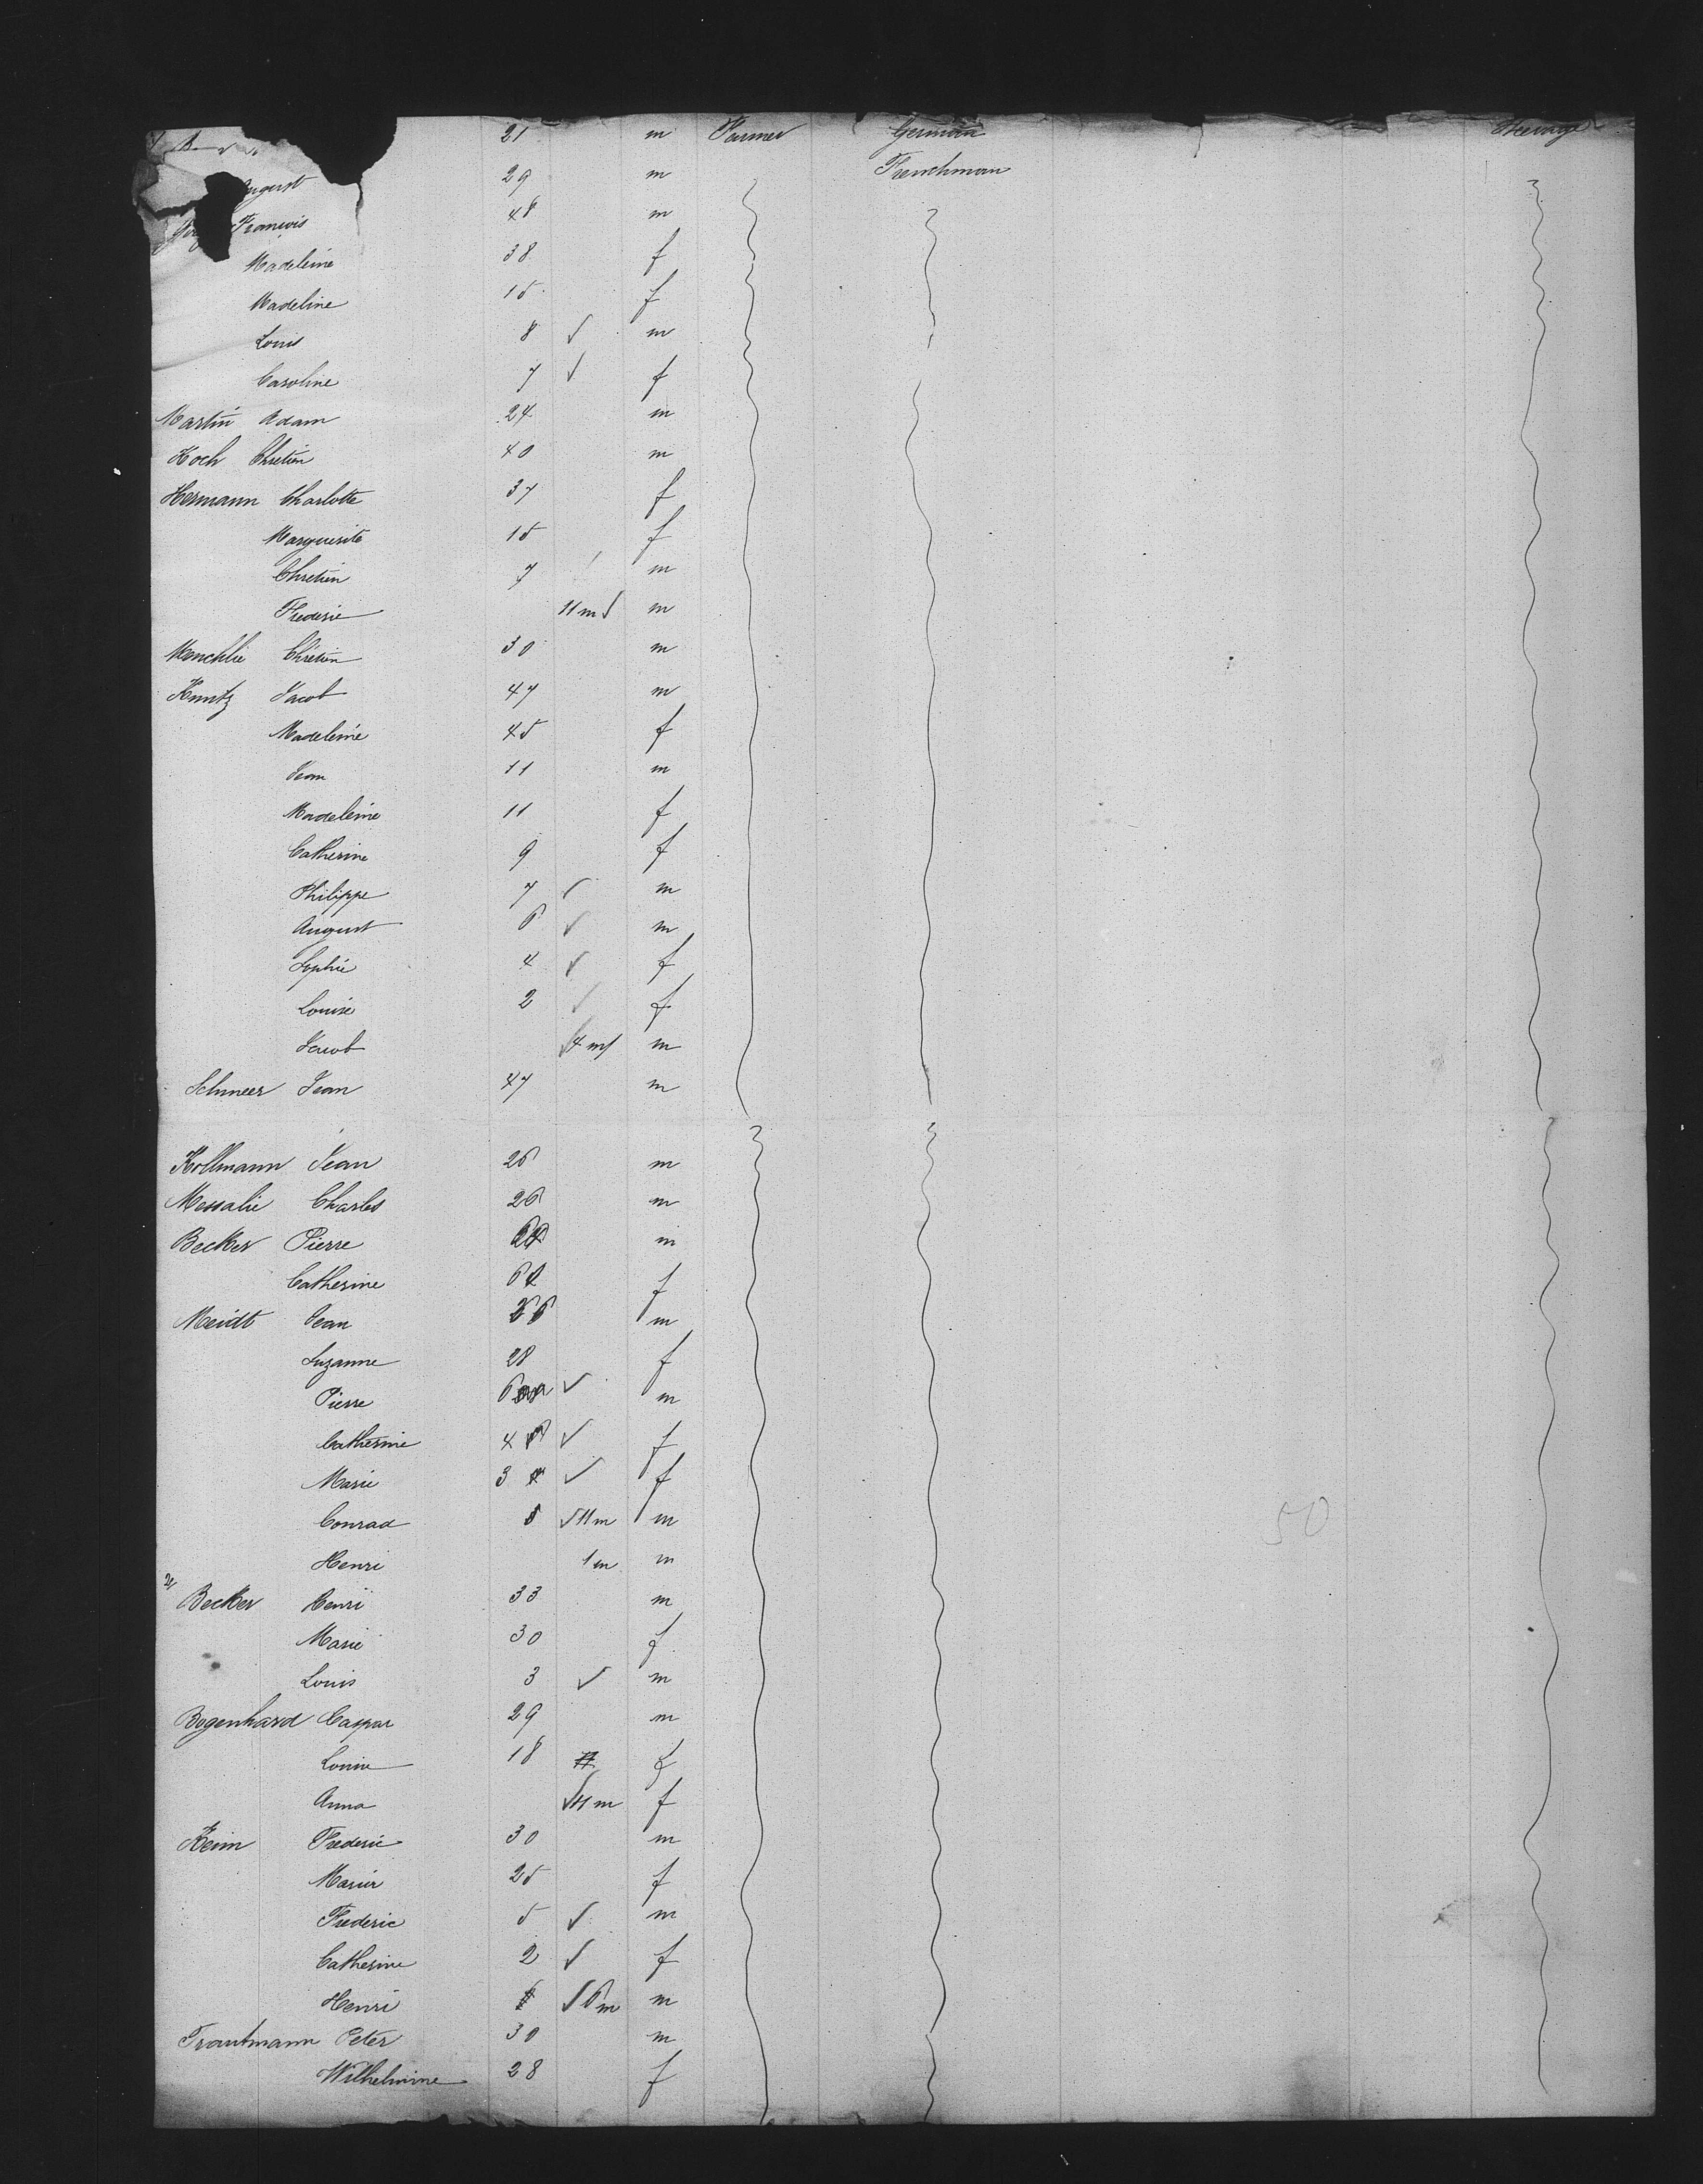 21 m Farmer German Steerage
August 29 m Frenchman
Francois 48 m
Madeleine 38 f
Madeline 15 f
Louis 8 √ m
Caroline 7 √ f
Martin Adam 24 m
Koch Chretien 40 m
Hermann Charlotte 37 f
Marguerite 15 f
Chretien 7 m
Frederic 11 m √ m
Chretien 30 m
Kuntz Jacob 47 m
Madeleine 45 f
Jean 11 m
Madeleine 11 f
Catherine 9 f
Philippe 7 √ m
August 6 √ m
Sophie 4 √ f
Louise 2 √ f
Jacob √ 4 m m
Schneer Jean 47 m
Kollmann Jean 26 m
Messalie Charles 26 m
Becker Pierre m
Catherine f
Meidt Jean m
Suzanne 28 f
Pierre 6 √ m
Catherine 4 √ f
Marie 3 √ f
Conrad √ 11 m m
50
Henri 1 m m
Becker Henri 33 m
Marie 30 f
Louis 3 √ m
Bogenhard Caspar 29 m
Louise 18 f
Anna √ 11 m f
Keim Frederic 30 m
Marie 25 f
Frederic 5 √ m
Catherine 2 √ f
Henri √ 6 m m
Trautmann Peter 30 m
Wilhelmine 28 f